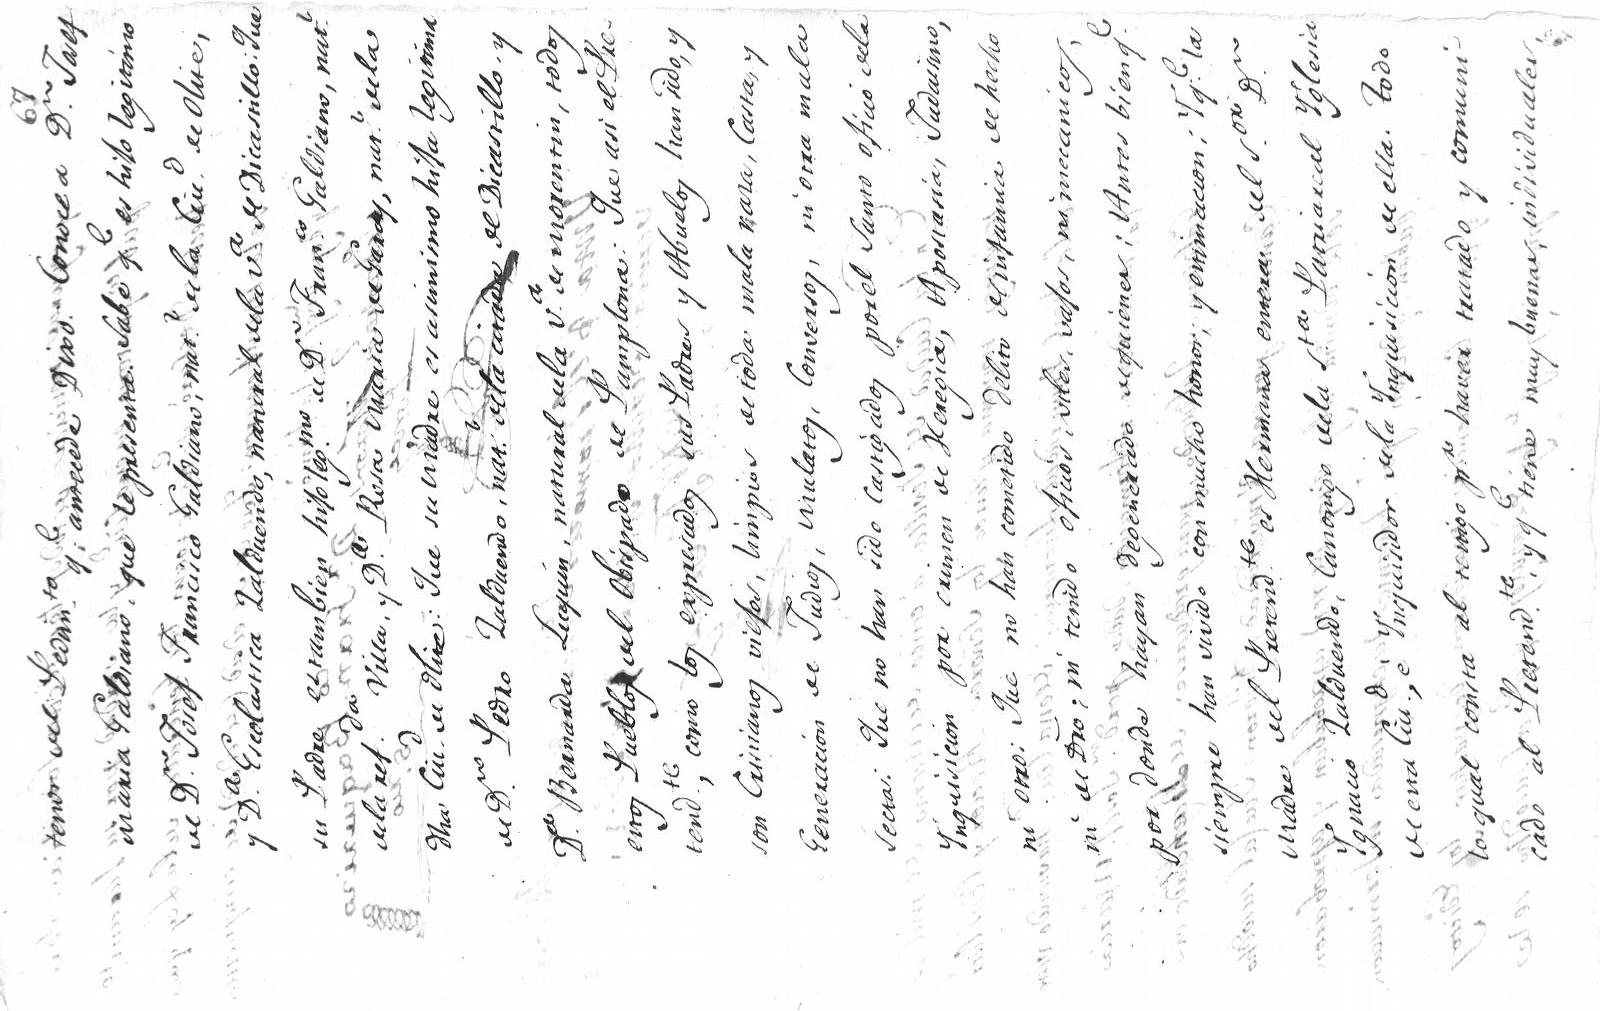 67
tenor del Pedim.to q.e antecede Dixo: Conoce a D.n Josef
Maria Galdiano, que le presenta: Sabe q.e es hijo legitimo
de D.n Josef Francisco Galdiano, nat.l de la Ciu.d de Olite,
y D.a Escolastica Zalduendo, natural de la v.a de Dicastillo: Que
su Padre es tambien hijo leg.mo de D.n Fran.co Galdiano, nat.l
de la ref.da Villa, y D.a Rosa Maria de Garay, nat.l de la
dha Ciu.d de Olite: Que su Madre es asimismo hija legitima
de D.n Pedro Zalduendo, nat.l de Dicastillo, y
D.a Bernarda Luquin, natural de la v.a de Morentin, todos
estos Pueblos del Obispado de Pamplona: Que asi el Pre-
tend.te, como los expresados sus Padres y Abuelos han sido, y
son Cristianos viejos, limpios de toda mala raza, Casta, y
Generacion de Judios, Mulatos, Conversos, ni otra mala
Secta: Que no han sido castigados por el Santo oficio de la
Ynquisicion por crimen de Heregia, Apostasia, Judaismo,
ni otro: Que no han cometido delito de infamia de hecho
ni de Dro; ni tenido oficios viles, vajos, ni mecanicos,
por donde hayan degenerado de quienes; Antes bien q.e
siempre han vivido con mucho honor, y estimacion; Y q.e la
Madre del Pretend.te es Hermana entera del S.or D.n
Ygnacio Zalduendo, Canonigo de la S.ta Patriarcal Yglesia
de esta Ciu.d, e Ynquisidor de la Ynquisicion de ella. Todo
lo qual consta al testigo p.r haver tratado y comuni-
cado al Pretend.te; y q.e tiene muy buenas, individuales,